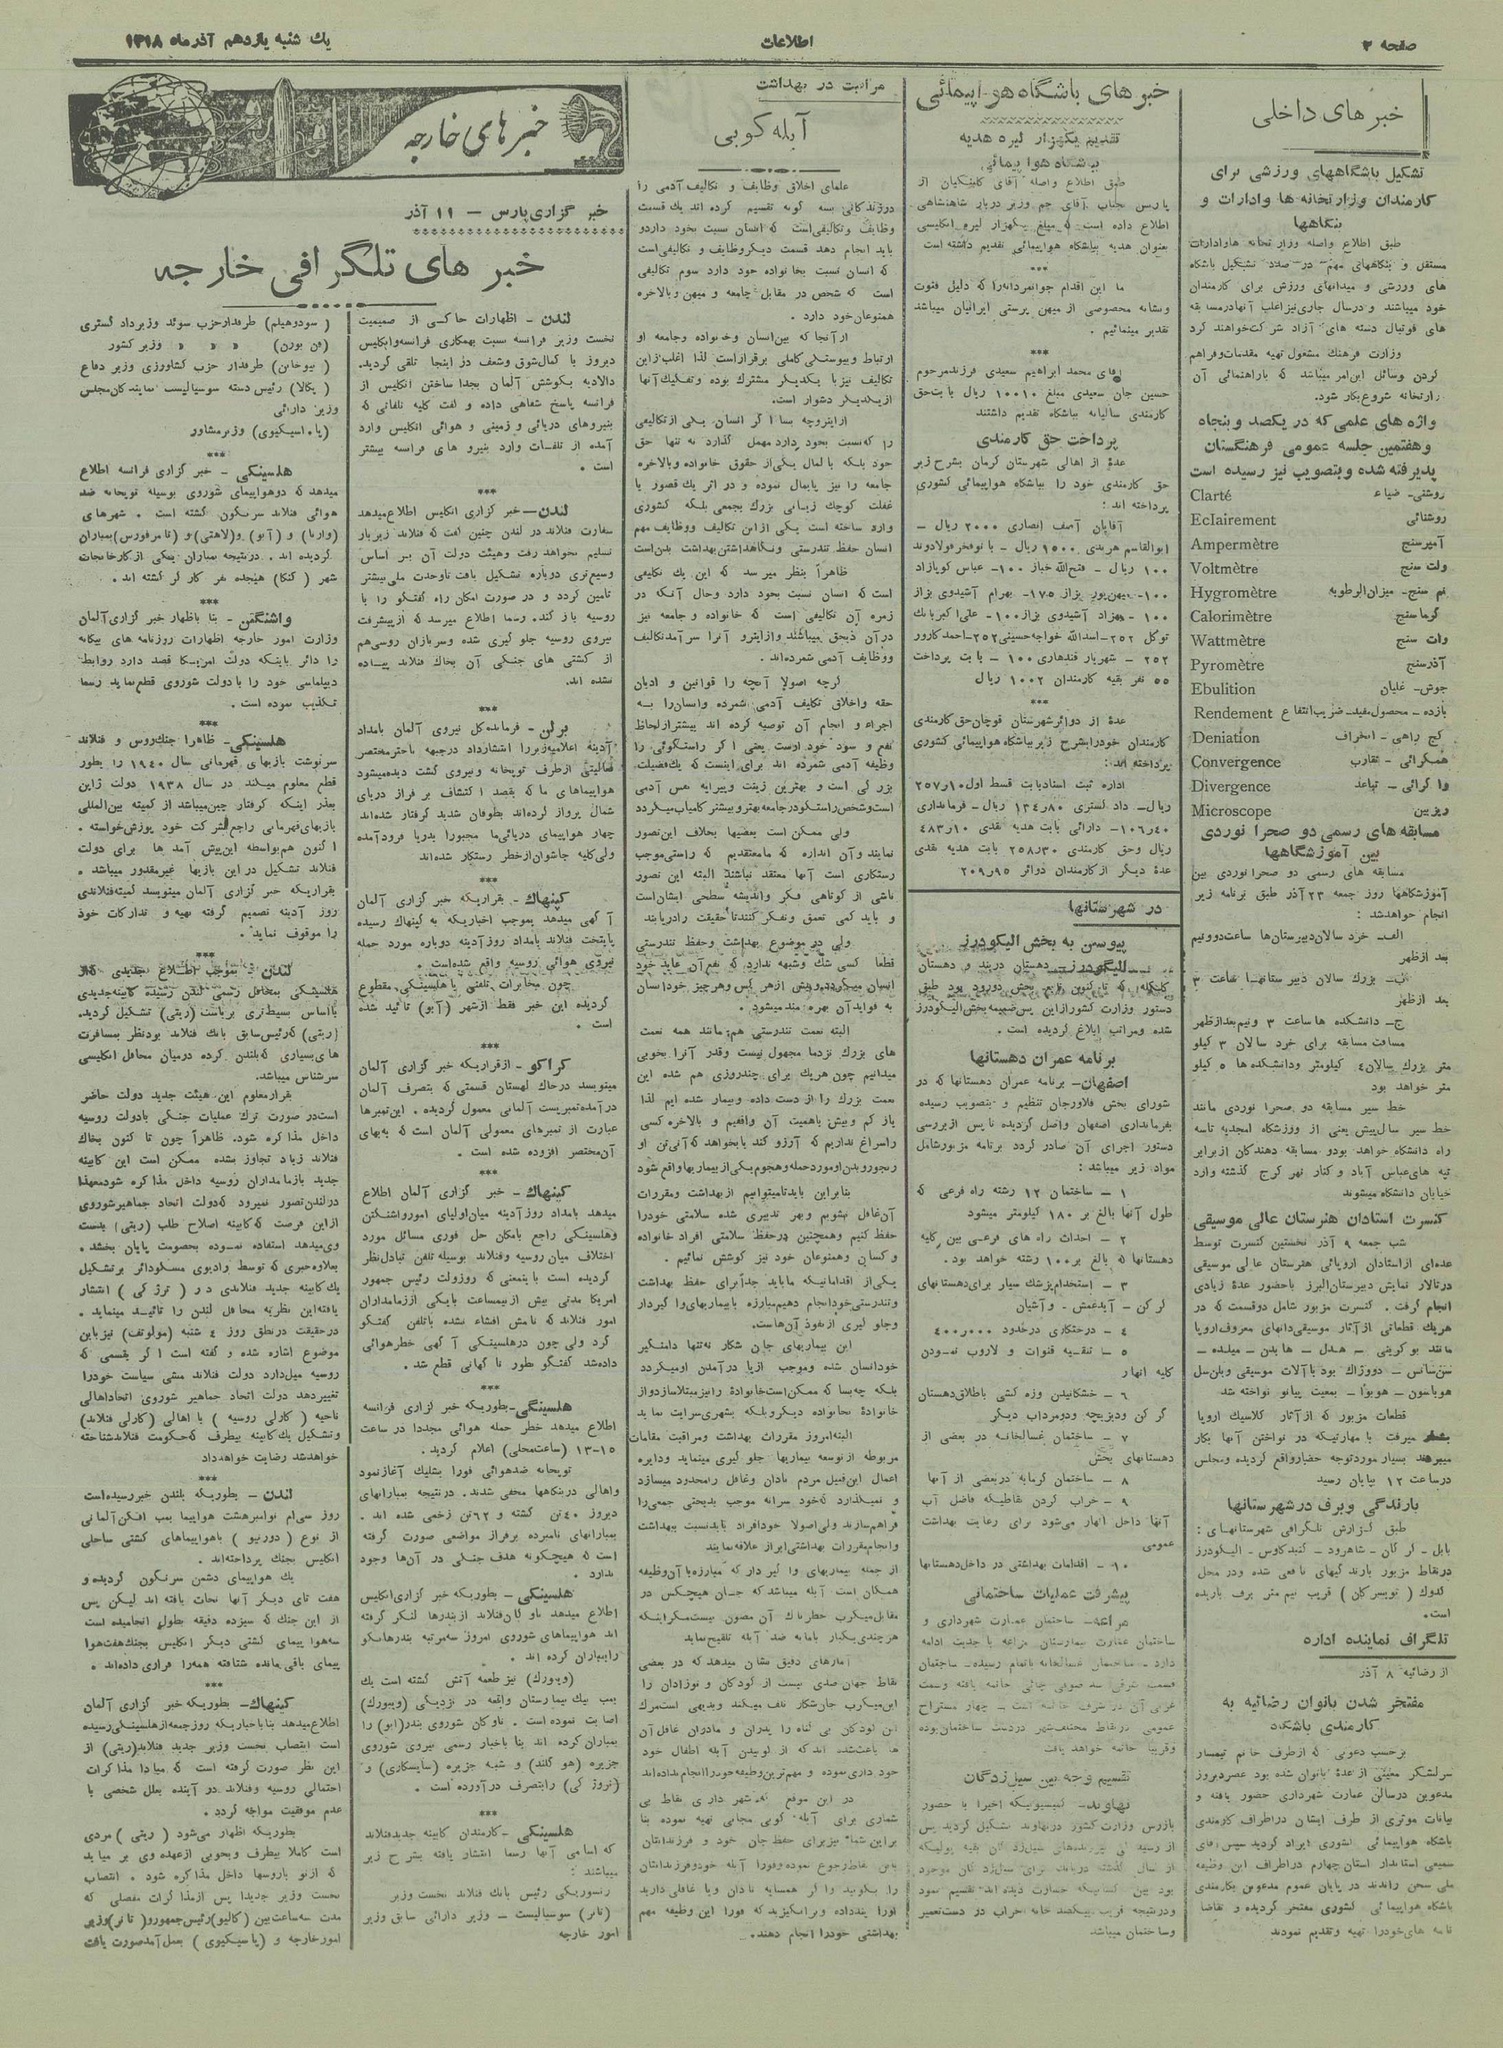 صفحه ۲
اطلاعات
یك شنبه یازدهم آذرماه ۱۳۱۸
خبرهای داخلی
تشکیل باشگاههای ورزشی برای
کارمندان وزارتخانه ها و ادارات و
بنگاهها
طبق اطلاع واصله وزارتخانه ها و ادارات
مستقل و بنگاههای مهم در صدد تشکیل باشگاه
های ورزشی و میدانهای ورزش برای کارمندان
خود میباشند و در سال جاری نیز اغلب آنها در مسابقه
های فوتبال دسته های آزاد شرکت خواهند کرد
وزارت فرهنك مشغول تهیه مقدمات و فراهم
کردن وسائل این امر میباشد که با راهنمائی آن
وزارتخانه شروع بکار شود.
واژه های علمی که در یکصد و پنجاه
و هفتمین جلسه عمومی فرهنگستان
پذیرفته شده و بتصویب نیز رسیده است
روشنی- ضیاء Clarté
روشنائی Eclairement
آمپرسنج Ampermètre
ولت سنج Voltmètre
نم سنج- میزان الرطوبه Hygromètre
گرماسنج Calorimètre
وات سنج Wattmètre
آذرسنج Pyromètre
جوش- غلیان Ebulition
بازده - محصول مفید- ضریب انتفاع Rendement
کج راهی - انحراف Deniation
همگرائی - تقارب Convergence
واگرائی - تباعد Divergence
ریزبین Microscope
مسابقه های رسمی دو صحرا نوردی
بین آموزشگاهها
مسابقه های رسمی دو صحرا نوردی بین
آموزشگاهها روز جمعه ۲۳ آذر طبق برنامه زیر
انجام خواهد شد :
الف- خرد سالان دبیرستان ها ساعت دو و نیم
بعد از ظهر
ب- بزرك سالان دبیرستانها ساعت ۳
بعد از ظهر
ج- دانشکده ها ساعت ۳ و نیم بعد از ظهر
مسافت مسابقه برای خرد سالان ۳ کیلو
متر بزرك سالان ۴ کیلومتر و دانشکده ها ۵ کیلو
متر خواهد بود
خط سیر مسابقه دو صحرا نوردی مانند
خط سیر سال پیش یعنی از ورزشگاه امجدیه تا سه
راه دانشگاه خواهد بود و مسابقه دهندگان از برابر
تپه های عباس آباد و کنار نهر کرج گذشته وارد
خیابان دانشگاه میشوند
کنسرت استادان هنرستان عالی موسیقی
شب جمعه ۹ آذر نخستین کنسرت توسط
عده ای از استادان اروپائی هنرستان عالی موسیقی
در تالار نمایش دبیرستان البرز با حضور عدهٔ زیادی
انجام گرفت . کنسرت مزبور شامل دو قسمت که در
هر یك قطعاتی از آثار موسیقی دانهای معروف اروپا
مانند بوکرینی - هندل - هایدن -
سن سانس - دووژاك بود با آلات موسیقی ویلن سل
هوباسون - هوبوا - بمعیت پیانو نواخته شد
قطعات مزبور که از آثار کلاسیك اروپا
بشمار میرفت با مهارتیکه در نواختن آنها بکار
میبردند بسیار مورد توجه حضار واقع گردیده و مجلس
در ساعت ۱۲ بپایان رسید
بارندگی و برف در شهرستانها
طبق گزارش تلگرافی شهرستانهای :
بابل - گرگان - شاهرود - گنبدکاوس - الیگودرز
در نقاط مزبور بارندگیهای نافعی شده و در محل
گدوك ( تویسرکان ) قریب نیم متر برف باریده
است.
تلگراف نماینده اداره
از رضائیه ۸ آذر
مفتخر شدن بانوان رضائیه به
کارمندی باشگاه
برحسب دعوتی که از طرف خانم تیمسار
سرلشگر معینی از عدهٔ بانوان شده بود عصر دیروز
مدعوین در سالن عمارت شهرداری حضور یافته و
بیانات موثری از طرف ایشان در اطراف کارمندی
باشگاه هواپیمائی کشوری ایراد گردید سپس آقای
سمیعی استاندار استان چهارم در اطراف این وظیفه
ملی سخن راندند در پایان عموم مدعوین بکارمندی
باشگاه هواپیمائی کشوری مفتخر گردیده و تقاضا
نامه های خود را تهیه و تقدیم نمودند
خبرهای باشگاه هواپیمائی
تقدیم یکهزار لیره هدیه
بباشگاه هواپیمائی
طبق اطلاع واصله آقای گلبنگیان از
پاریس جناب آقای جم وزیر دربار شاهنشاهی
اطلاع داده است که مبلغ یکهزار لیره انگلیسی
بعنوان هدیه بباشگاه هواپیمائی تقدیم داشته است
***
ما این اقدام جوانمردانه را که دلیل فتوت
و نشانه محصوصی از میهن پرستی ایرانیان میباشد
تقدیر مینمائیم .
***
آقای محمد ابراهیم سعیدی فرزند مرحوم
حسین جان سعیدی مبلغ ۱۰۰۱۰ ریال بابت حق
کارمندی سالیانه بباشگاه تقدیم داشتند
پرداخت حق کارمندی
عدهٔ از اهالی شهرستان کرمان بشرح زیر
حق کارمندی خود را بباشگاه هواپیمائی کشوری
پرداخته اند :
آقایان آصف انصاری ۲۰۰۰ ریال -
ابوالقاسم هرندی ۱۵۰۰ ریال - بانو فخر فولادوند
۱۰۰ ریال - فتح الله خباز ۱۰۰- عباس کوپازاد
۱۰۰- میهن پور بزاز ۱۷۵- بهرام آشیدوی بزاز
۱۰۰ - بهزاد آشیدوی بزاز ۱۰۰- علی اکبر بانك
توکل ۲۵۲ - اسدالله خواجه حسینی ۲۵۲ - احمد کارور
۲۵۲ - شهریار قندهاری ۱۰۰ - بابت پرداخت
۵۵ نفر بقیه کارمندان ۱۰۰۲ ریال
***
عدهٔ از دوائر شهرستان قوچان حق کارمندی
کارمندان خود را بشرح زیر بباشگاه هواپیمائی کشوری
پرداخته اند :
اداره ثبت اسناد بابت قسط اول ۲۵۷ر۱۰
ریال- دادگستری ۱۳۴ر۸۰ ریال- فرمانداری
۱۰۶ر۴۰- دارائی بابت هدیه نقدی ۴۸۳ر۱۰
ریال و حق کارمندی ۲۵۸ر۳۰ بابت هدیه نقدی
عدهٔ دیگر از کارمندان دوائر ۲۰۹ر۹۵
در شهرستانها
پیوستن به بخش الیگودرز
الیگودرز- دهستان دربند و دهستان
که تا کنون تابع بخش دورود بود طبق
دستور وزارت کشور از این پس ضمیمه بخش الیگودرز
شده و مراتب ابلاغ گردیده است .
برنامه عمران دهستانها
اصفهان- برنامه عمران دهستانها که در
شورای بخش فلاورجان تنظیم و بتصویب رسیده
بفرمانداری اصفهان واصل گردیده تا پس از بررسی
دستور اجرای آن صادر گردد برنامه مزبور شامل
مواد زیر میباشد :
۱ - ساختمان ۱۲ رشته راه فرعی که
طول آنها بالغ بر ۱۸۰ کیلومتر میشود
۲ - احداث راه های فرعی بین کلیه
دهستانها که بالغ بر ۱۰۰ رشته خواهد بود .
۳ - استخدام پزشك سیار برای دهستانهای
گرکن - آیدغمش - و آشیان
۴ - درختکاری در حدود ۴۰۰ر۰۰۰
۵ - تنقیه قنوات و لاروب نمودن
کلیه انهار
۶ - خشکانیدن وزه کشی باطلاق دهستان
گرکن و دیزیچه و دومرداب دیگر
۷ - ساختمان غسالخانه در بعضی از
دهستانهای بخش
۸ - ساختمان گرمابه در بعضی از آنها
۹ - خراب کردن نقاطیکه فاضل آب
آنها داخل انهار میشود برای رعایت بهداشت
عمومی
۱۰ - اقدامات بهداشتی در داخل دهستانها
پیشرفت عملیات ساختمانی
مراغه- ساختمان عمارت شهرداری و
ساختمان عمارت بیمارستان مراغه با جدیت ادامه
دارد - ساختمان غسالخانه باتمام رسیده - ساختمان
عمومی در نقاط مختلف شهر در دست ساختمان بوده
و قریباً خاتمه خواهد یافت
تقسیم وجه بین سیل زدگان
نهاوند- کمیسیونیکه اخیرا با حضور
بازرس وزارت کشور در نهاوند تشکیل گردید پس
بود بین کسانیکه خسارت دیده اند تقسیم نمود
و در نتیجه قریب بیکصد خانه خراب در دست تعمیر
و ساختمان میباشد
مراقبت در بهداشت
آبله کوبی
علمای اخلاق وظایف و تکالیف آدمی را
در زندگانی بسه گونه تقسیم کرده اند یك قسمت
وظایف و تکالیفی است که انسان نسبت بخود دارد و
باید انجام دهد قسمت دیگر وظایف و تکالیفی است
که انسان نسبت بخانواده خود دارد سوم تکالیفی
است که شخص در مقابل جامعه و میهن و بالاخره
همنوعان خود دارد .
از آنجا که بین انسان و خانواده و جامعه او
ارتباط و پیوستگی کاملی برقرار است لذا اغلب از این
تکالیف نیز با یکدیگر مشترك بوده و تفکیك آنها
از یکدیگر دشوار است.
از اینرو چه بسا اگر انسان یکی از تکالیفی
را که نسبت بخود دارد مهمل گذارد نه تنها حق
خود بلکه با لمال یکی از حقوق خانواده و بالاخره
جامعه را نیز پایمال نموده و در اثر یك قصور یا
غفلت کوچك زیانی بزرك بجمعی بلکه کشوری
وارد ساخته است یکی از این تکالیف و وظایف مهم
انسان حفظ تندرستی و نگاهداشتن بهداشت بدن است
ظاهراً بنظر میرسد که این یك تکلیفی
است که انسان نسبت بخود دارد و حال آنکه در
زمره آن تکالیفی است که خانواده و جامعه نیز
در آن ذیحق میباشند و از اینرو آنرا سرآمد تکالیف
و وظایف آدمی شمرده اند .
گرچه اصولا آنچه را قوانین و ادیان
حقه و اخلاق تکلیف آدمی شمرده و انسان را به
اجراء و انجام آن توصیه کرده اند بیشتر از لحاظ
نفع و سود خود اوست یعنی اگر راستگوئی را
وظیفه آدمی شمرده اند برای اینست که یك فضیلت
بزرگی است و بهترین زینت و پیرایه نفس آدمی
است و شخص راستگو در جامعه بهتر و بیشتر کامیاب میگردد
ولی ممکن است بعضیها بخلاف این تصور
نمایند و آن اندازه که ما معتقدیم که راستی موجب
رستگاری است آنها معتقد نباشند البته این تصور
ناشی از کوتاهی فکر و اندیشه سطحی ایشان است
و باید کمی تعمق و تفکر کنند تا حقیقت را دریابند
ولی در موضوع بهداشت و حفظ تندرستی
قطعا کسی شك و شبهه ندارد که نفع آن عاید خود
انسان میگردد و پیش از هر کس و هر چیز خود انسان
به فواید آن بهره مند میشود .
البته نعمت تندرستی هم مانند همه نعمت
های بزرك نزد ما مجهول نیست و قدر آنرا بخوبی
میدانیم چون هر یك برای چند روزی هم شده این
نعمت بزرك را از دست داده و بیمار شده ایم لذا
یا کم و بیش باهمیت آن واقفیم و بالاخره کسی
را سراغ نداریم که آرزو کند یا بخواهد که آنی تن او
رنجور و بدن او مورد حمله و هجوم یکی از بیماریها واقع شود
بنابراین باید تا میتوانیم از بهداشت و مقررات
آن غافل نشویم و بهر تدبیری شده سلامتی خود را
حفظ کنیم و همچنین در حفظ سلامتی افراد خانواده
و کسان و همنوعان خود نیز کوشش نمائیم .
یکی از اقداماتیکه ما باید جداً برای حفظ بهداشت
و تندرستی خود انجام دهیم مبارزه با بیماریهای واگیردار
و جلوگیری از نفوذ آن هاست.
این بیماریهای جان شکار نه تنها دامنگیر
خود انسان شده و موجب از پا درآمدن او میگردد
بلکه چه بسا که ممکن است خانوادهٔ را نیز مبتلا سازد و از
خانوادهٔ بخانواده دیگر و بلکه بشهری سرایت نماید
البته امروز مقررات بهداشت و مراقبت مقامات
مربوطه از توسعه بیماریها جلوگیری مینماید و دایره
اعمال این قبیل مردم نادان و غافل را محدود میسازد
و نمیگذارد که خود سرانه موجب بدبختی جمعی را
فراهم سازند ولی اصولا خود افراد باید نسبت ببهداشت
و انجام مقررات بهداشتی ابراز علاقه نمایند
از جمله بیماریهای واگیردار که مبارزه با آن وظیفه
همگان است آبله میباشد که جان هیچکس در
مقابل میکرب خطرناك آن مصون نیست مگر اینکه
هر چندی یکبار با مایه ضد آبله تلقیح نماید
آمارهای دقیق نشان میدهد که در بعضی
نقاط جهان صدی بیست از کودکان و نوزادان را
این میکرب جان شکار تلف میکند و بدیهی است مرك
این کودکان بی گناه را پدران و مادران غافل آن
ها باعث شده اند که از کوبیدن آبله اطفال خود
خودداری نموده و مهم ترین وظیفه خود را انجام نداده اند
در این موقع که شهرداری نقاط بی
شماری برای آبله کوبی مجانی تهیه نموده بنا
براین شما نیز برای حفظ جان خود و فرزندانتان
باین نقاط رجوع نموده و فورا آبله خود و فرزندانتان
را بکوبید و اگر همسایه نادان و یا غافلی دارید
او را پند داده و برانگیزید که فورا این وظیفه مهم
بهداشتی خود را انجام دهند.
خبرهای خارجه
خبرگزاری پارس - ۱۱ آذر
خبرهای تلگرافی خارجه
لندن - اظهارات حاکی از صمیمیت
نخست وزیر فرانسه نسبت بهمکاری فرانسه و انگلیس
دیروز با کمال شوق و شعف در اینجا تلقی گردید.
دالادیه بکوشش آلمان بجدا ساختن انگلیس از
فرانسه پاسخ شفاهی داده و گفت کلیه تلفاتی که
بنیروهای دریائی و زمینی و هوائی انگلیس وارد
آمده از تلفات وارد بنیروهای فرانسه بیشتر
است .
***
لندن - خبرگزاری انگلیس اطلاع میدهد
سفارت فنلاند در لندن چنین گفت که فنلاند زیر بار
تسلیم نخواهد رفت و هیئت دولت آن بر اساس
وسیع تری دوباره تشکیل یافت تا وحدت ملی بیشتر
تامین گردد و در صورت امکان راه گفتگو را با
روسیه باز کند. رسما اطلاع میرسد که از پیشرفت
نیروی روسیه جلوگیری شده و سربازان روسی هم
از کشتی های جنگی آن بخاك فنلاند پیاده
نشده اند.
***
برلن - فرمانده کل نیروی آلمان بامداد
آدینه اعلامیه زیر را انتشار داد در جبهه باختر مختصر
فعالیتی از طرف توپخانه و نیروی گشت دیده میشود
هواپیماهای ما که بقصد اکتشاف بر فراز دریای
شمال پرواز کرده اند بطوفان شدید گرفتار شده اند
چهار هواپیمای دریائی ما مجبورا بدریا فرود آمده
ولی کلیه جاشوان از خطر رستگار شده اند
***
کپنهاك - بقراریکه خبرگزاری آلمان
آگهی میدهد بموجب اخباریکه به کپنهاك رسیده
پایتخت فنلاند بامداد روز آدینه دوباره مورد حمله
نیروی هوائی روسیه واقع شده است .
چون مخابرات تلفنی با هلسینگی مقطوع
گردیده این خبر فقط از شهر (آبو) تائید شده
است .
***
کراکو - از قراریکه خبرگزاری آلمان
مینویسد در خاك لهستان قسمتی که بتصرف آلمان
درآمده تمبر پست آلمانی معمول گردیده . این تمبرها
عبارت از تمبرهای معمولی آلمان است که به بهای
آن مختصر افزوده شده است .
***
کپنهاك - خبرگزاری آلمان اطلاع
میدهد بامداد روز آدینه میان اولیای امور واشنگتن
و هلسینگی راجع بامکان حل فوری مسائل مورد
اختلاف میان روسیه و فنلاند بوسیله تلفن تبادل نظر
گردیده است باینمعنی که روزولت رئیس جمهور
امریکا مدتی بیش از نیمساعت با یکی از زمامداران
امور فنلاند که نامش افشاء نشده با تلفن گفتگو
کرد ولی چون در هلسینگی آگهی خطر هوائی
داده شد گفتگو بطور ناگهانی قطع شد .
***
هلسینگی - بطوریکه خبرگزاری فرانسه
اطلاع میدهد خطر حمله هوائی مجددا در ساعت
۱۳-۱۵ (ساعت محلی) اعلام گردید .
توپخانه ضد هوائی فورا بشلیك آغاز نمود
و اهالی در پناهگاهها مخفی شدند. در نتیجه بمبارانهای
دیروز ۴۰ تن کشته و ۶۲ تن زخمی شده اند .
بمبارانهای نامبرده بر فراز مواضعی صورت گرفته
است که هیچگونه هدف جنگی در آن ها وجود
ندارد .
هلسینگی - بطوریکه خبرگزاری انگلیس
اطلاع میدهد ناوگان فنلاند از بندرها لنگر گرفته
اند هواپیماهای شوروی امروز سه مرتبه بندر هانکو
را بمباران کرده اند .
(ویبورك) نیز طعمه آتش گشته است یك
بمب بیك بیمارستان واقعه در نزدیکی (ویبورك)
اصابت نموده است . ناوگان شوروی بندر (ابو) را
بمباران کرده اند بنا باخبار رسمی نیروی شوروی
جزیره (هوگلند) و شبه جزیره (سایسکاری) و
(نروزکی) را بتصرف درآورده است .
***
هلسینگی - کارمندان کابینه جدید فنلاند
که اسامی آنها رسما انتشار یافته بشرح زیر
میباشند :
رئیس بانك فنلاند نخست وزیر
(تانر) سوسیالیست - وزیر دارائی سابق وزیر
امور خارجه
( سودرهیلم) طرفدار حزب سوئد وزیر دادگستری
(فن بورن) « « « وزیر کشور
( نیوخانن) طرفدار حزب کشاورزی وزیر دفاع
( پکالا) رئیس دسته سوسیالیست نمایندگان مجلس
وزیر دارائی
(پا.اسیکیوی) وزیر مشاور
***
هلسینگی - خبرگزاری فرانسه اطلاع
میدهد که دو هواپیمای شوروی بوسیله توپخانه ضد
هوائی فنلاند سرنگون گشته است . شهرهای
(وارنا) و (آبو) و(لاهتی) و (تامرفورس) بمباران
گردیده اند . در نتیجه بمباران یکی از کارخانجات
شهر (لنکا) هیجده نفر کارگر کشته اند .
***
واشنگتن - بنا باظهار خبرگزاری آلمان
وزارت امور خارجه اظهارات روزنامه های بیگانه
را دائر باینکه دولت امریکا قصد دارد روابط
دیپلماسی خود را با دولت شوروی قطع نماید رسما
تکذیب نموده است .
***
هلسینگی - ظاهرا جنك روس و فنلاند
سرنوشت بازیهای قهرمانی سال ۱۹۴۰ را بطور
قطع معلوم میکند در سال ۱۹۳۸ دولت ژاپن
بعذر اینکه گرفتار چین میباشد از کمیته بین المللی
بازیهای قهرمانی راجع بشرکت خود پوزش خواسته .
اکنون هم بواسطه این پیش آمدها برای دولت
فنلاند تشکیل در این بازیها غیر مقدور میباشد .
بقراریکه خبرگزاری آلمان مینویسد کمیته فنلاندی
روز آدینه تصمیم گرفته تهیه و تدارکات خود
را موقوف نماید .
***
لندن - بموجب اطلاع جدیدی که از
هلسینگی بمحافل رسمی لندن رسیده کابینه جدیدی
با اساس بسیط تری بریاست (ریتی) تشکیل گردید.
(ریتی) که رئیس سابق بانك فنلاند بود نظر بمسافرت
های بسیاری که بلندن کرده در میان محافل انگلیسی
سرشناس میباشد.
بقرار معلوم این هیئت جدید دولت حاضر
است در صورت ترك عملیات جنگی با دولت روسیه
داخل مذاکره شود. ظاهراً چون تا کنون بخاك
فنلاند زیاد تجاوز نشده ممکن است این کابینه
جدید با زمامداران روسیه داخل مذاکره شود معهذا
در لندن تصور نمیرود که دولت اتحاد جماهیر شوروی
از این فرصت که کابینه اصلاح طلب (ریتی) بدست
وی میدهد استفاده نموده بخصومت پایان بخشد .
بعلاوه خبری که توسط رادیوی مسکو دائر بر تشکیل
یك کابینه جدید فنلاندی در ( ترژکی ) انتشار
یافته این نظریه محافل لندن را تائید مینماید .
در حقیقت در نطق روز ۴ شنبه (مولوتف) نیز باین
موضوع اشاره شده و گفته است اگر بقسمی که
روسیه میل دارد دولت فنلاند مشی سیاست خود را
تغییر دهد دولت اتحاد جماهیر شوروی اتحاد اهالی
ناحیه (کارلی روسیه) با اهالی (کارلی فنلاند)
و تشکیل یك کابینه بیطرف که حکومت فنلاند شناخته
خواهد شد رضایت خواهد داد
***
لندن - بطوریکه بلندن خبر رسیده است
روز سی ام نوامبر هشت هواپیما بمب افکن آلمانی
از نوع ( دورنیو ) با هواپیماهای گشتی ساحلی
انگلیس بجنك پرداخته اند .
یك هواپیمای دشمن سرنگون گردیده و
هفت تای دیگر آنها نجات یافته اند لیکن پس
از این جنك که سیزده دقیقه بطول انجامیده است
سه هواپیمای گشتی دیگر انگلیس بجنك هفت هوا
پیمای باقی مانده شتافته همه را فراری داده اند .
***
کپنهاك - بطوریکه خبرگزاری آلمان
اطلاع میدهد بنا باخباریکه روز جمعه از هلسینگی رسیده
است انتصاب نخست وزیر جدید فنلاند (ریتی) از
این نظر صورت گرفته است که مبادا مذاکرات
احتمالی روسیه و فنلاند در آینده بعلل شخصی با
عدم موفقیت مواجه گردد .
بطوریکه اظهار میشود ( ریتی ) مردی
است کاملا بیطرف و بخوبی از عهده وی بر میاید
که از نو با روسها داخل مذاکره شود . انتصاب
نخست وزیر جدید پس از مذاکرات مفصلی که
مدت سه ساعت بین (کالیو) رئیس جمهور و (تانر) وزیر
امور خارجه و (پاسیکیوی ) بعمل آمد صورت یافت